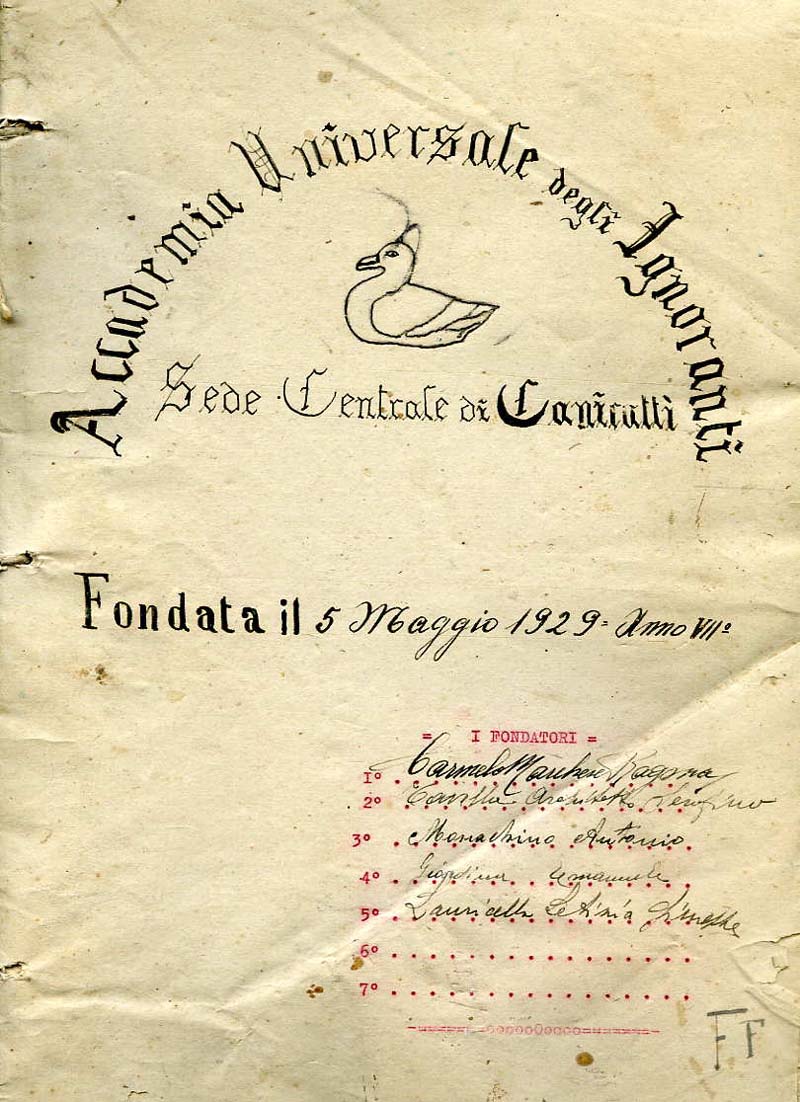 Accademia Universale degli Ignoranti
Sede Centrale di Canicattì
Fondata il 5 Maggio 1929= Anno VII°
= I FONDATORI =
1° Carmelo Marchese Ragona
2° Tavilla Architetto Serafino
3° Monachino Antonio
4° Giardina Emanuele
5° Lauricella Letizia
6°
7°
FF